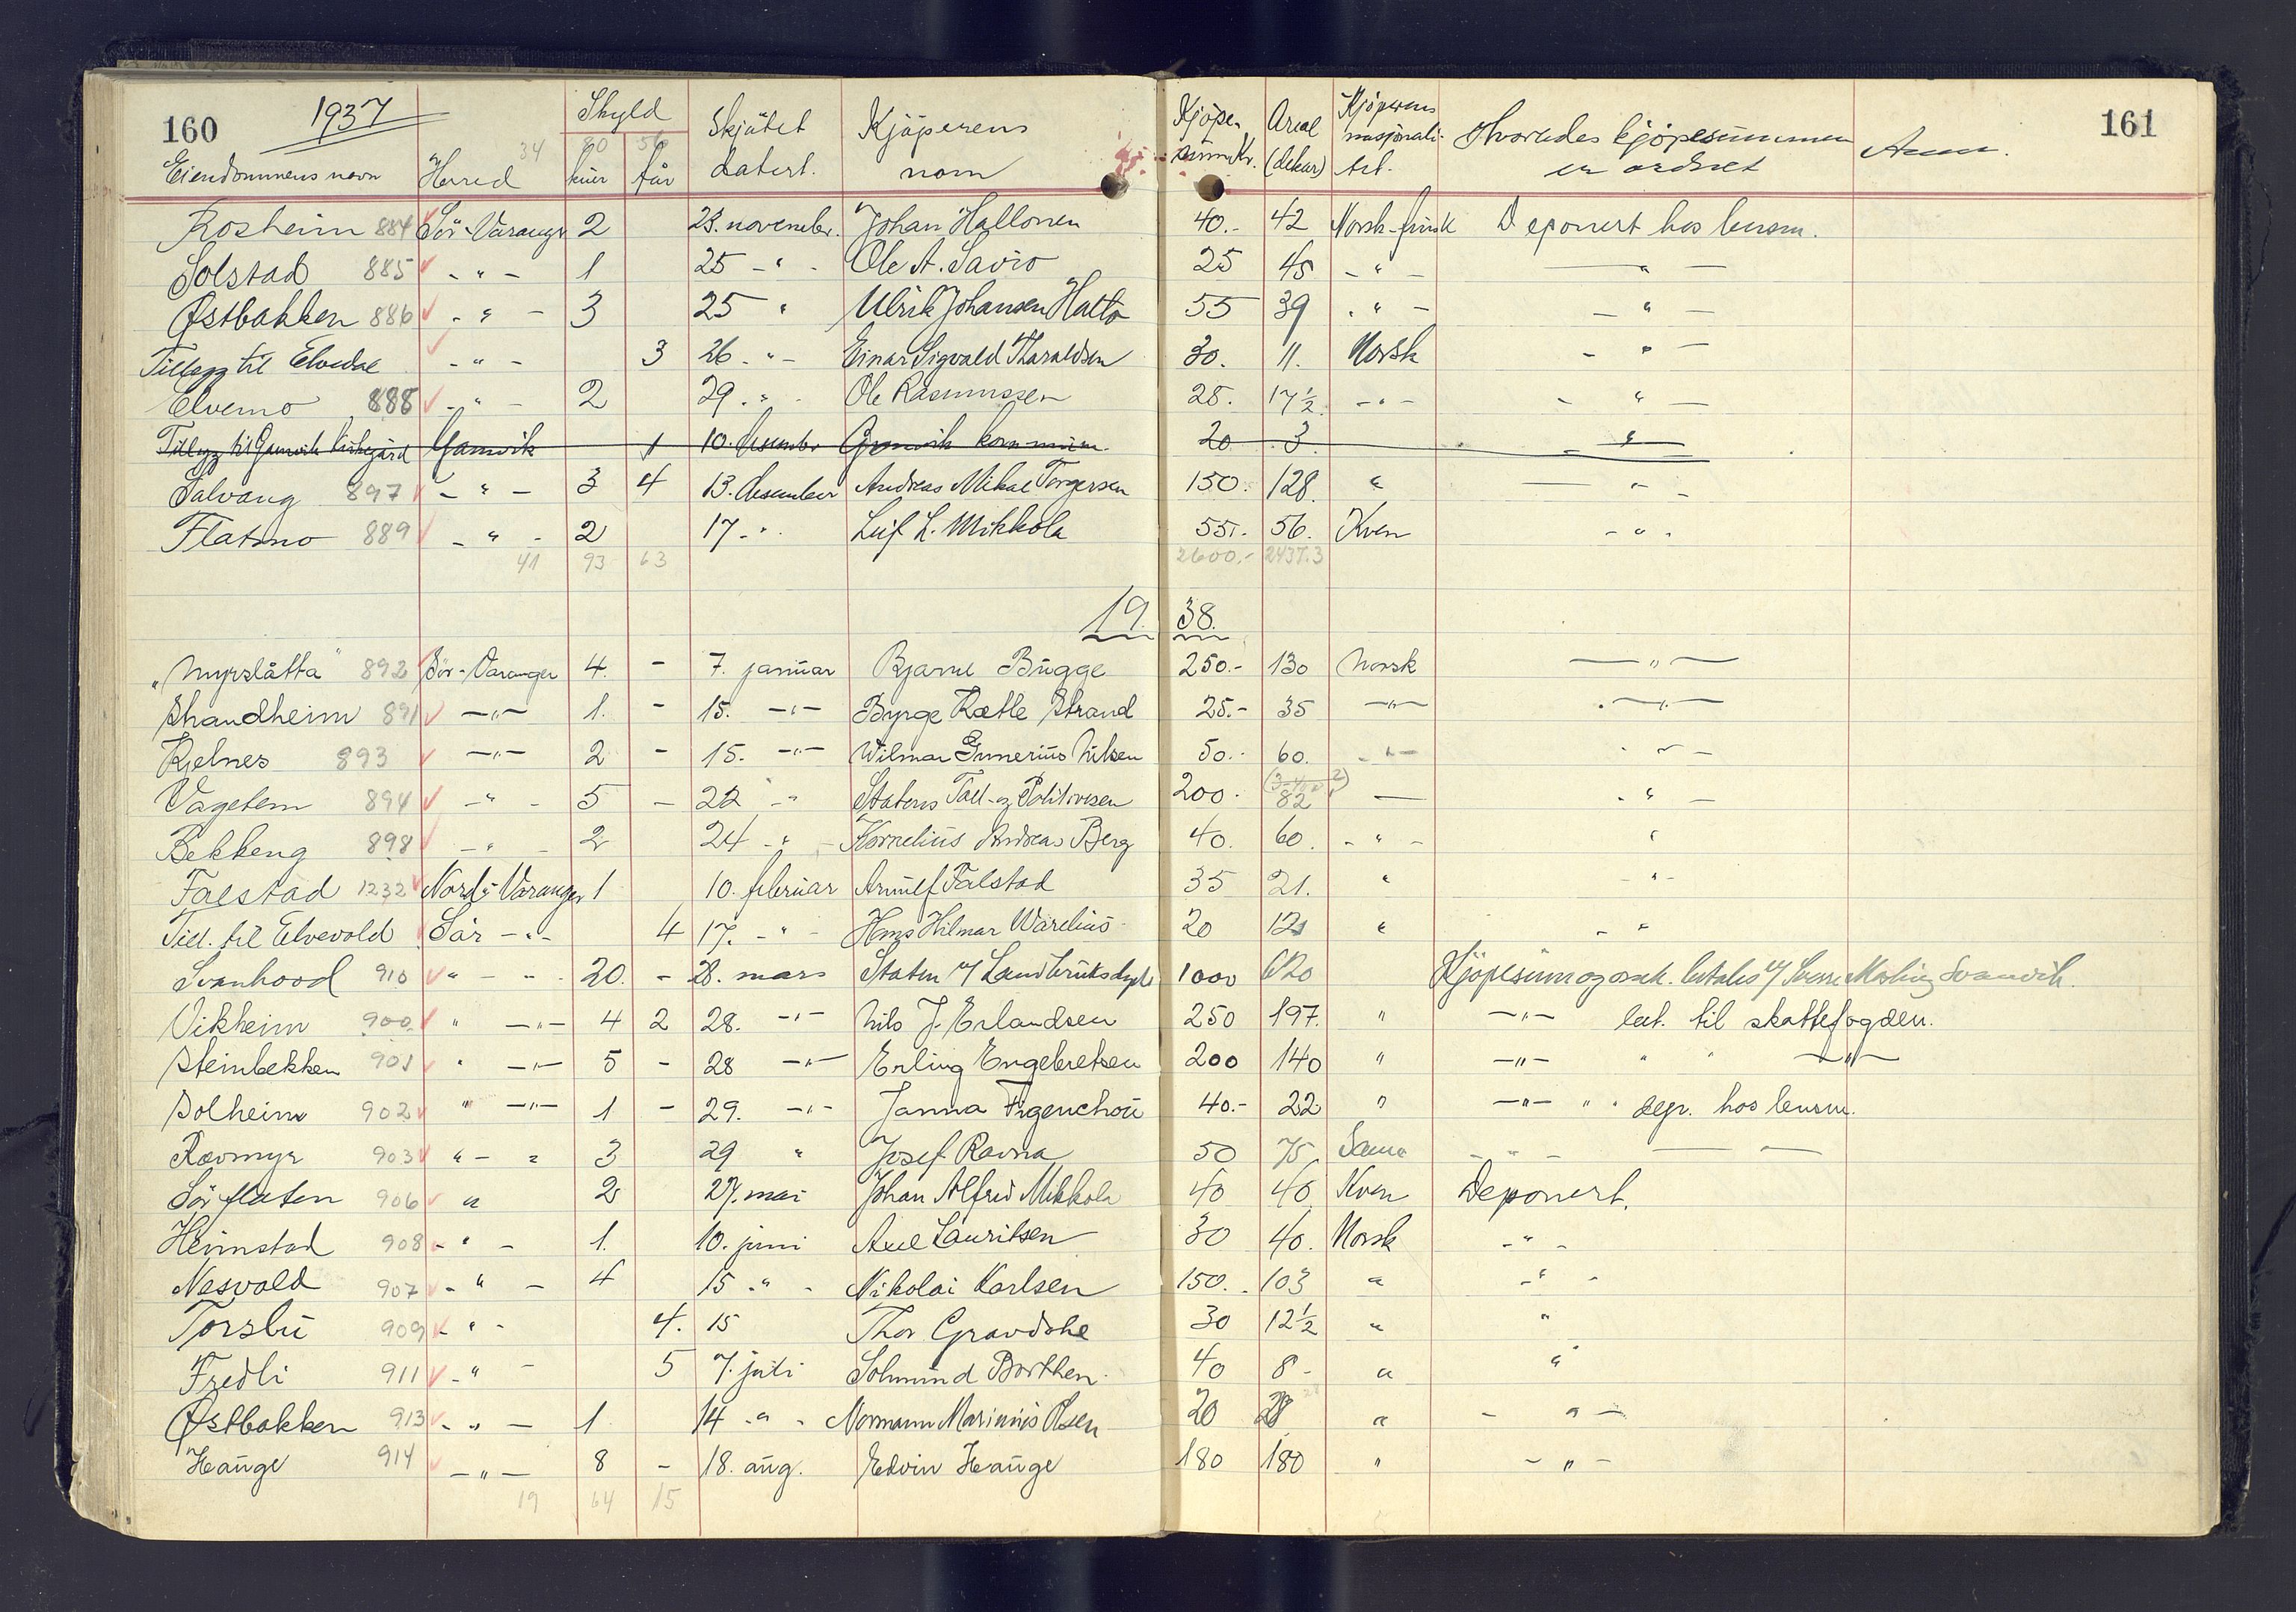 160 1937 34 Skyld 80 56 Skjøtet datert. Kjøperens navn Kjøpesum Kr. Areal (dekar) Kjøperens nasjonalitet. Hvorledes kjøpesummen er ordnet Anm. 161
Eiendommens navn Herred kuer får
Rosheim 884 Sör-Varanger 2 23. november. Johan Hallonen 40.- 42 Norsk-finsk Deponert hos lensm.
Solstad 885 - " - 1 25 - " - Ole A. Savio 25 45 - " - - " -
Østbakken 886 - " - 3 25 " Ulrik Johansen Hatto 55 39 - " - - " -
Tillegg til Elvedal - " - 3 26 - " - Einar Sigvald Haraldsen 30. 11. Norsk - " -
Elvemo 888 - " - 2 29 - " - Ole Rasmussen 28. 17 1/2 - " - - " -
Tillegg til Gamvik kirkegård Gamvik 1 10. desember Gamvik kommune 20 3 - " -
Salvang 897 - " - 3 4 13. desember Andreas Mikal Torgersen 150. 128. " - " -
Flatmo 889 - " - 2 17 - " - Leif L. Mikkola 55.- 56. Kven - " -
41 93 63 2600.- 2437.3
1938.
"Myrslåtta" 892 Sör-Varanger 4. - 7. januar Bjarne Bugge 250.- 130 Norsk - " -
Strandheim 891 - " - 1. - 15. - " - Byrge Kætle Strand 25.- 35 - " - - " -
Kjelnes 893 - " - 2 - 15. - " - Wilmar Gunerius Nilsen 50.- 60. - " - - " -
Vagetem 894 - " - 5 - 22 - " - Statens Toll- og Politivesen 200.- 82 - - " -
Bekkeng 898 - " - 2 24 - " - Kornelius Andreas Berg 40. 60. - " - "
Falstad 1232 Nord-Varanger 1 10. februar Arnulf Falstad 35 21. " - " -
Till. til Elvevold Sör - " - 4 17. - " - Hans Hilmar Warelius 20 12 " - " -
Svanhovd 910 " - " - 20. - 28. mars Staten v/ Landbruksdept 1000 620 Kjøpesum og omk. betales v/ Sverre Svanvik.
Vikheim 900 " - " - 4 2 28. - " - Nils J. Erlandsen 250 197. " - " - bet. til skattefogden.
Steinbekken 901 " - " - 5 - 28 - " - Erling Engebretsen 200 140 " - " - " " - " -
Solheim 902 " - " - 1 - 29. - " - Janna Figenchou 40.- 22 " - " - " " depr. hos lensm.
Rævmyr 903 " - " 3 29 " Josef Ravna 50 75 Same - " - - -
Sörflaten 906 " 2 27. mai Johan Alfred Mikkola 40 40 Kven Deponert.
Heimstad 908 - " - 1. 10. juni Axel Lauritsen 30 40. Norsk - " -
Nesvold 907 - " - 4 15 - " - Nikolai Karlsen 150.- 103 " - " -
Torsbu 909 - " - 4. 15 Thor Gravdahl 30 12 1/2 " "
Fredli 911 - " - 5 7. juli Solmund Borthen 40 8 - " "
Østbakken 913 - " - 1 14 - " - Normann Marinius Olsen 20 28 " - " -
Hauge 914 - " - 8 - 18. aug. Edvin Hauge 180 180 " - " -
19 64 15